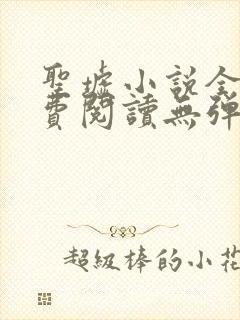 聖墟小说全
費閱讀無彈
超級棒的小花